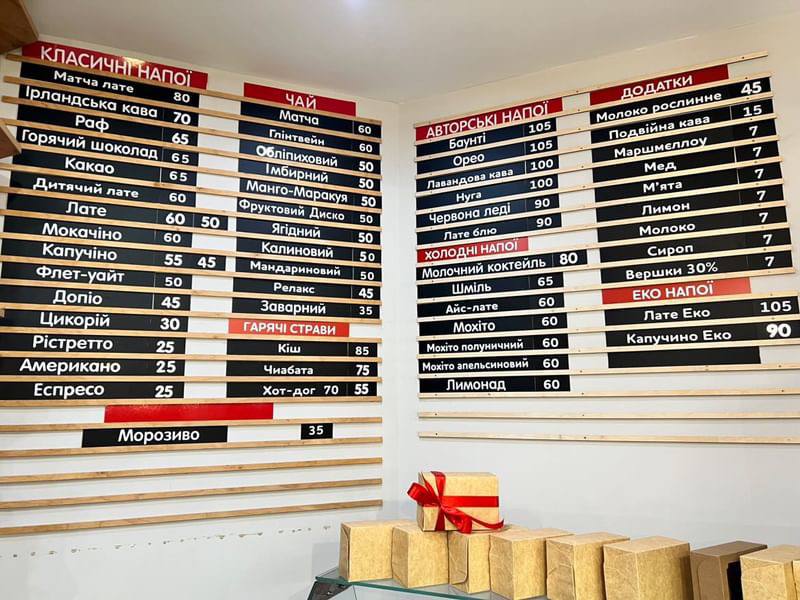 КЛАСИЧНІ НАПОЇ
Матча лате 80
Ірландська кава 70
Раф 65
Горячий шоколад 65
Какао 65
Дитячий лате 60
Лате 60 50
Мокачіно 60
Капучіно 55 45
Флет-уайт 50
Допіо 45
Цикорій 30
Рістретто 25
Американо 25
Еспресо 25
Морозиво 35
ЧАЙ
Матча 60
Глінтвейн 60
Обліпиховий 50
Імбирний 50
Манго-Маракуя 50
Фруктовий Диско 50
Ягідний 50
Калиновий 50
Мандариновий 50
Релакс 45
Заварний 35
ГАРЯЧІ СТРАВИ
Кіш 85
Чиабата 75
Хот-дог 70 55
АВТОРСЬКІ НАПОЇ
Баунті 105
Орео 105
Лавандова кава 100
Нуга 100
Червона леді 90
Лате блю 90
ХОЛОДНІ НАПОЇ
Молочний коктейль 80
Шміль 65
Айс-лате 60
Мохіто 60
Мохіто полуничний 60
Мохіто апельсиновий 60
Лимонад 60
ДОДАТКИ
Молоко рослинне 45
Подвійна кава 15
Маршмєллоу 7
Мед 7
М'ята 7
Лимон 7
Молоко 7
Сироп 7
Вершки 30% 7
ЕКО НАПОЇ
Лате Еко 105
Капучино Еко 90